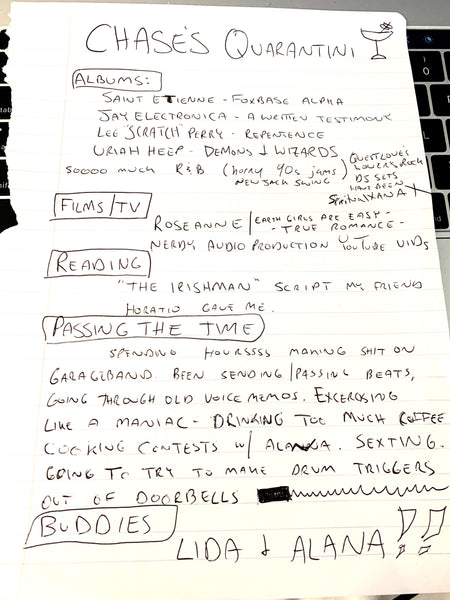 CHASE'S QUARANTINI
ALBUMS:
SAINT ETIENNE - FOXBASE ALPHA
JAY ELECTRONICA - A WRITTEN TESTIMONY
LEE "SCRATCH" PERRY - REPENTENCE
URIAH HEEP - DEMONS & WIZARDS
SOOOO MUCH R&B (HORNY 90s JAMS)
NEW JACK SWING
QUESTLOVE'S
LOVER'S ROCK
DJ SETS
HAVE BEEN
SPIRITUAL XANAX
FILMS/TV
ROSEANNE / EARTH GIRLS ARE EASY -
- TRUE ROMANCE -
NERDY AUDIO PRODUCTION YOUTUBE VIDS
READING
"THE IRISHMAN" SCRIPT MY FRIEND
HORATIO GAVE ME.
PASSING THE TIME
SPENDING HOURSSSS MAKING SHIT ON
GARAGEBAND. BEEN SENDING/PASSING BEATS,
GOING THROUGH OLD VOICE MEMOS. EXCERCISING
LIKE A MANIAC - DRINKING TOO MUCH COFFEE
COOKING CONTESTS W/ ALANA. SEXTING.
GOING TO TRY TO MAKE DRUM TRIGGERS
OUT OF DOORBELLS
BUDDIES
LIDA & ALANA!!